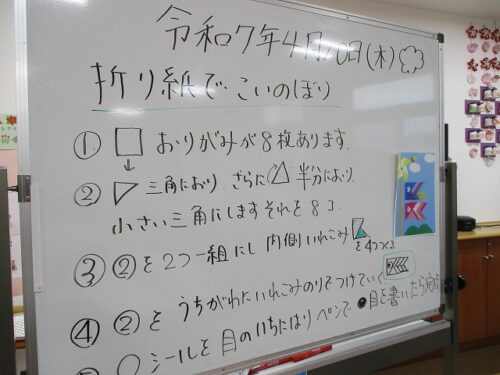 令和7年4月10日(木)
折り紙でこいのぼり
① おりがみが8枚あります.
② 三角におり さらに 半分におり
小さい三角にします それを8コ.
③ ②を2つ一組にし 内側いれこみ を4つつくる
④ ②を うちがわにいれこみのりでつけていく
シールを目のいちにはりペンで ●目を書いたら